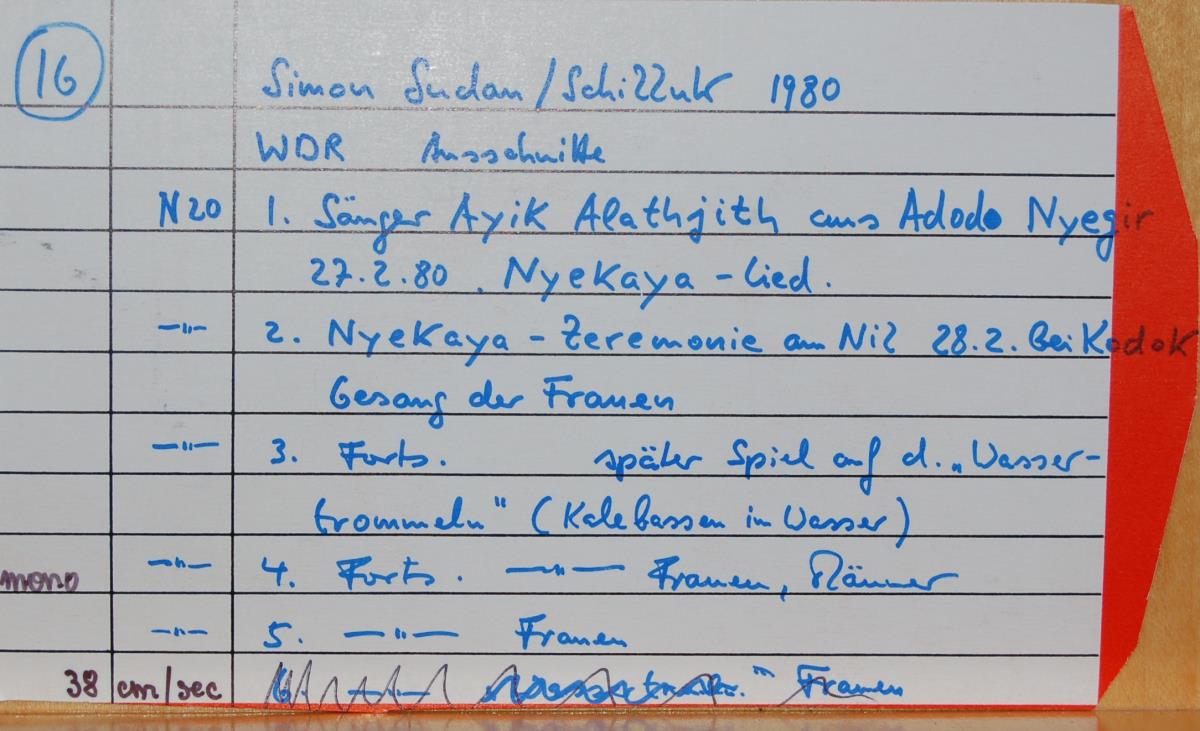 16 Simon Sudan/Schilluk 1980
WDR Ausschnitte
N20 1. Sänger Ayik Alathjith aus Adodo Nyegir
27.2.80. Nyekaya-Lied.
—"— 2. Nyekaya-Zeremonie am Nil 28.2. bei Kodok
Gesang der Frauen
—"— 3. Forts. später Spiel auf d. „Wasser-
trommeln" (Kalebassen im Wasser)
mono —"— 4. Forts. —"— Frauen, Männer
—"— 5. —"— Frauen
38 cm/sec 6. —"— Frauen